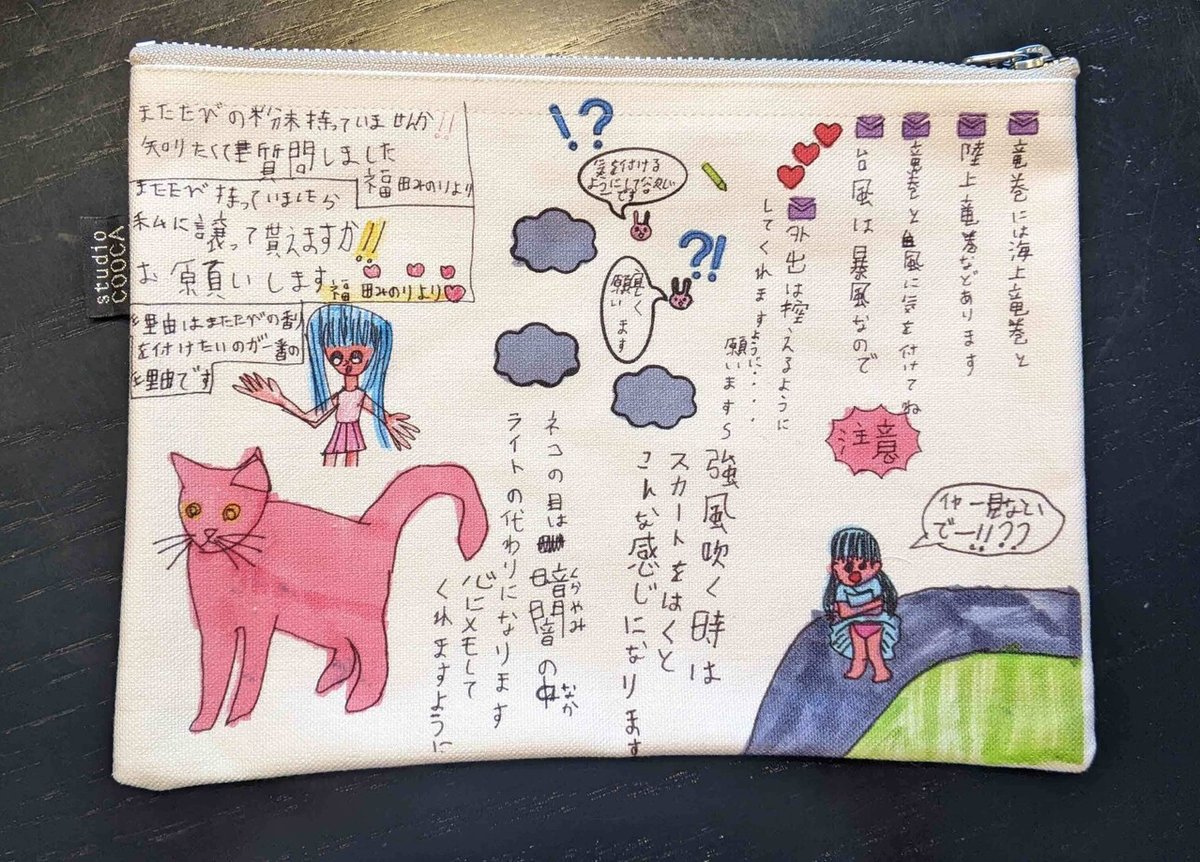 またたびの粉末持っていませんか!!
知りたくて質問しました
福田みのりより
またたび持っていましたら
私に譲って貰えますか!!
お願いします
福田みのりより
理由はまたたびの香り
を付けたいのが一番の
理由です
studio
COOCA
!?
気を付ける
ようにして下さい
です
?!
良く
願い
ます
竜巻には海上竜巻と
陸上竜巻などあります
竜巻と台風に気を付けてね
台風は暴風なので
外出は控えるように
してくれますように・・・・
願いますら
注意
強風吹く時は
スカートをはくと
こんな感じになります
ネコの目は暗闇の中
くらやみ
なか
ライトの代わりになります
心にメモして
くれますように
イヤー見ないい
でー!!??